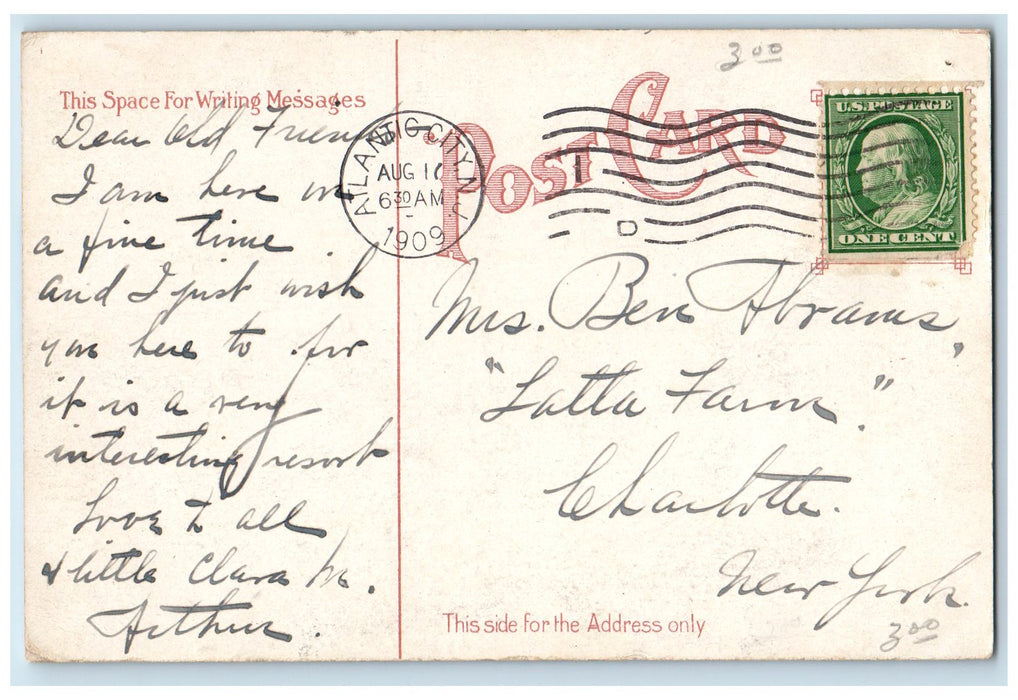 3.00
This Space For Writing Messages
Dear Old Friend
I am here in
a fine time
and I just wish
you here to for
it is a very
interesting resort
Love to all
& little Clara M.
Arthur.
POST CARD
ATLANTIC CITY N.J.
AUG 1
6 30 AM
1909
D
U.S. POSTAGE
ONE CENT
Mrs. Ben Abrams,
"Latta Farm".
Charlotte.
New York.
This side for the Address only
3.00